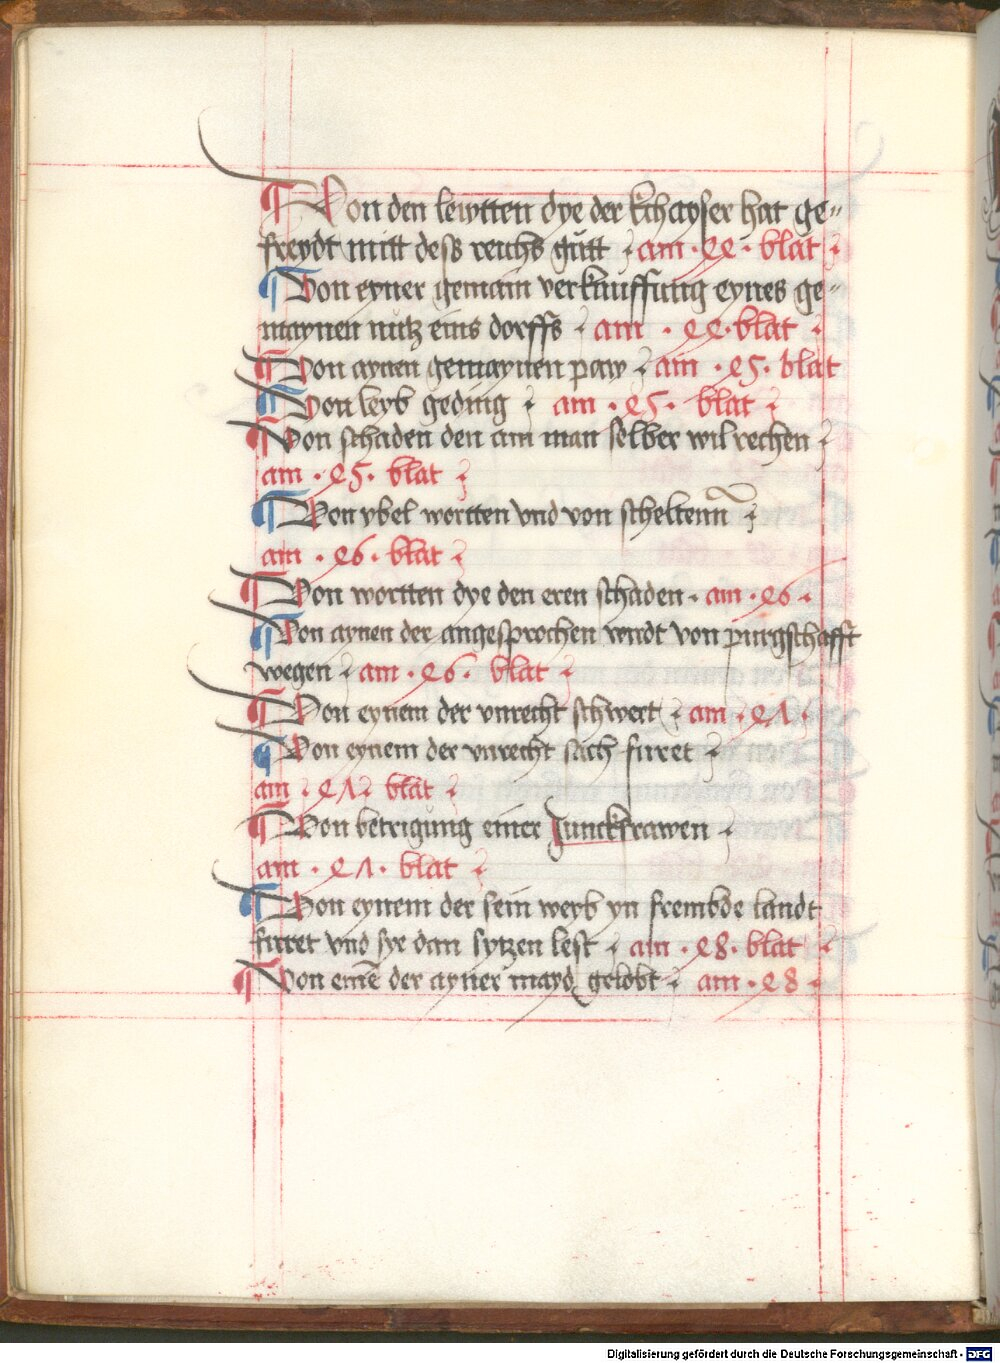 ¶ Von den lewtten dye der kchayser hat ge⸗
freydt mitt dess reichs gůtt am · 44 · blat
¶ Von eyner gemain verkauffung eynes ge⸗
maynen nutz eins dorffs am · 44 · blat
¶ Von aynen gemaynen paw am · 45 · blat
¶ Von leyb geding am · 45 · blat
¶ Von schaden den ain man selber wil rechen
am · 45 · blat
¶ Von ybel wortten vnd von scheltenn
am · 46 · blat
¶ Von wortten dye den eren schaden · am · 46 ·
¶ Von aynen der angesprochen wirdt von purgschafft
wegen am · 46 · blat
¶ Von eynem der vnrecht schwert am · 47 ·
¶ Von eynem der vnrecht sach fürret
am 47 blat
¶ Von betrigung einer Junckfrawen
am · 47 · blat
¶ Von eynem der sein weyb yn frembde landt
fürret vnd sye dan sytzen lest am · 48 · blat
¶ Von einē der ayner mayd gelobt am · 48
Digitalisierung gefördert durch die Deutsche Forschungsgemeinschaft - DFG